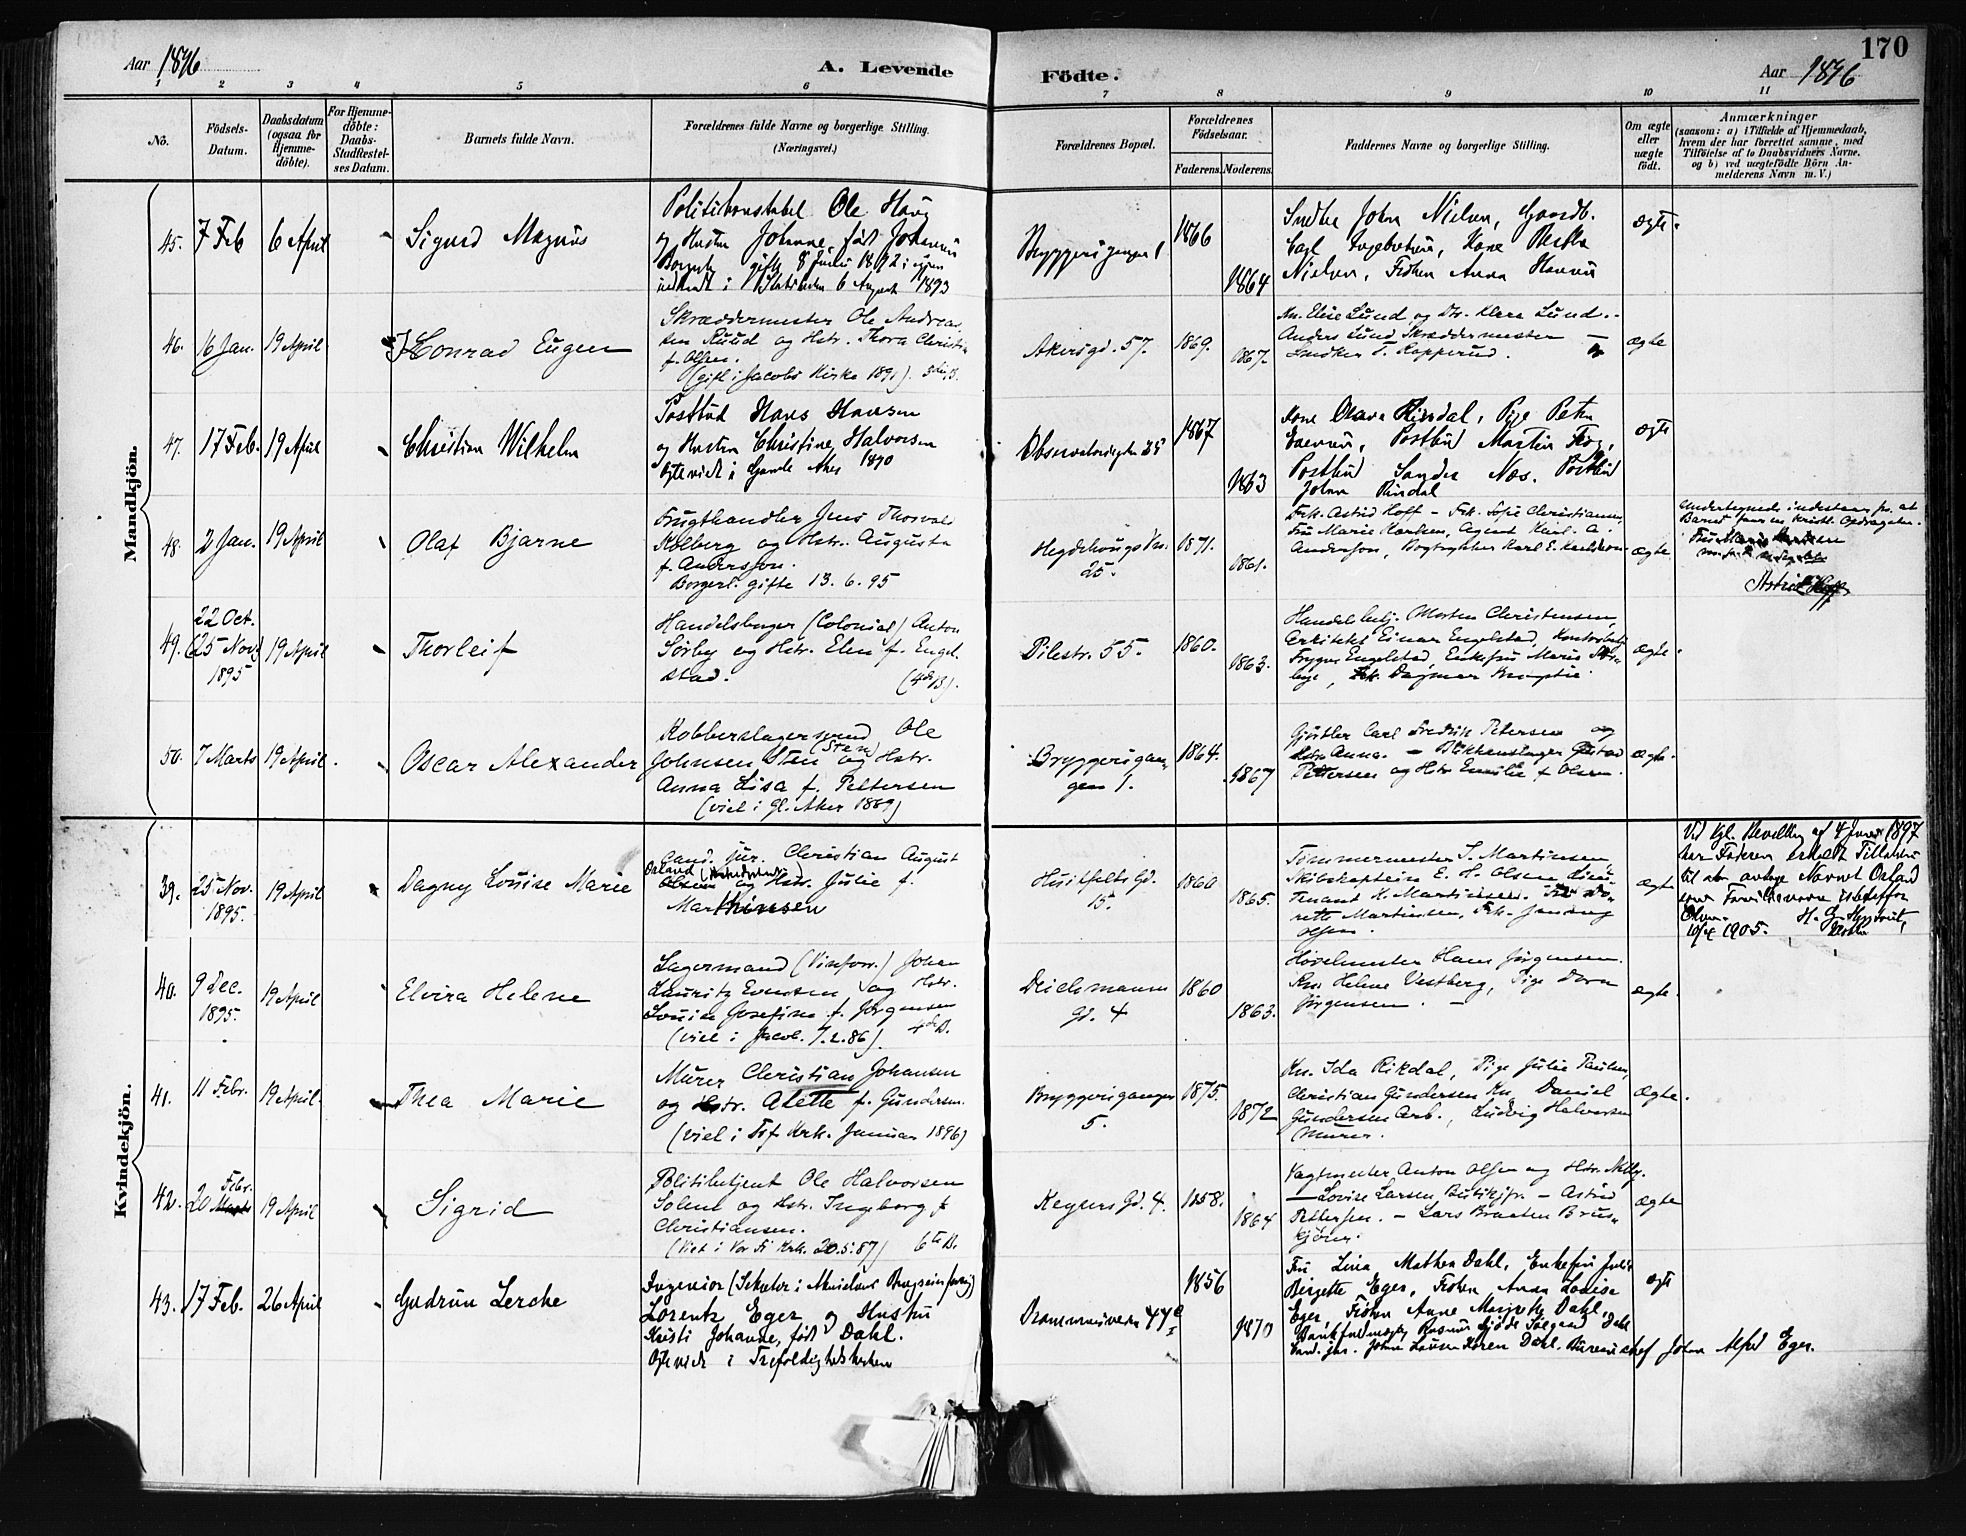 170
Aar 1896
A. Levende
Födte.
Aar 1896
1 2 3 4 5 6 7 8 9 10 11
No.
Födsels-
Datum.
Daabsdatum
(ogsaa for
Hjemme-
döbte).
For Hjemme-
döbte:
Daabs-
Stadfæstel-
ses Datum.
Barnets fulde Navn.
Forældrenes fulde Navne og borgerlige Stilling.
(Næringsvei.)
Forældrenes Bopæl.
Forældrenes
Födselsaar.
Faderens. Moderens.
Faddernes Navne og borgerlige Stilling.
Om ægte
eller
uægte
födt.
Anmærkninger
(saasom: a) i Tilfælde af Hjemmedaab,
hvem der har forrettet samme, med
Tilföielse af to Daabsvidners Navne,
og b) ved uægtefödte Börn An-
melderens Navn m. V.)
Mandkjön.
45. 7 Feb 6 April
Sigurd Magnus
Politikonstabel Ole Haug
og Hustru Johanne, født Johansen
Borgerlig gifte 8 Juni 1892
6 August 1893
Bryggerigangen 1
1866
1864
Snedker Johan Nielsen, Gaardb.
Nielsen, Frøken Anna Hansen
ægte
46. 16 Jan. 19 April
Conrad Eugen
Skræddermester Ole Andreas
Ruud og Hstr. Thora Christine
f. Olsen.
(gift i Jacobs Kirke 1891). 3die B.
Akersgd. 57.
1869.
1867.
Kn. Elise Lund og Klara Lund.
Anders Lund Skræddermester
Snedker T. Kopperud.
ægte
47. 17 Feb. 19 April
Christian Wilhelm
Postbud Hans Hansen
og Hustru Christine Halvorsen
Egteviet i Gamle Aker 1890
Observatoriegden 25
1867
1863
Kone Olava Rindal, Pige Petra
Postbud Martin
Postbud Sander Næs. Postbud
Johan Rindal
ægte
48. 2 Jan. 19 April
Olaf Bjarne
Frugthandler Jens Thorvald
Kolberg og Hstr. Augusta
f. Andersson.
Borgerl. gifte 13.6.95
Hegdehougsvn.
25.
1871.
1861.
Frk. Astrid Hoff - Frk. Sofie Christiansen
Fru Marie Karlsen, Agent Karl A.
Andersson, Bogtrykker Karl E. Karlsson
ægte
Undertegnede indestaar for at
Barnet faar en kristl. Opdragelse.
Astrid Hoff
49. 22 Oct.
(25 Nov.)
1895
19 April
Thorleif
Handelsborger (Colonial) Anton
Sörby og Hstr. Elen f. Engel-
stad. (4de B).
Pilestr. 55.
1860.
1863.
Handelsbetj. Morten Christensen,
Arkitekt Einar Engelstad, Kontorbetj.
Trygve Engelstad, Enkefru Marie
Frk. Dagmar
ægte.
50. 7 Marts 19 April.
Oscar Alexander
Kobberslagersvend Ole
Johnsen Sten (Steen) og Hstr.
Anna Lisa f. Pettersen
(viel i Gl. Aker 1889)
Bryggerigan-
gen 1.
1864.
1867
Gjørtler Carl Fredrik Petersen og
Hstr. Anna. - Blikkenslager Gustad
Pettersen og Hstr Emilie f. Olsen.
ægte.
Kvindekjön.
39. 25 Nov.
1895.
19 April
Dagny Louise Marie
Cand. jur. Christian August
Osland
Olsen og Hstr. Julie f.
Marthinsen
Huitfelts Gd.
15.
1860
1865.
Tømmermester S. Martinsen,
Skibskaptein E. H. Olsen Lieu-
tenant H. Martinsen.
rette Martinsen, Frk. Jenny
Olsen.
ægte
Ved Kgl. Bevilling af 4 Juni 1897
har Faderen erholdt Tilladelse
til at antage Navnet Osland
som Familienavn istedetfor
Olsen.
10/4 1905.
40. 9 Dec.
1895.
19 April
Elvira Helene
Lagermand (Vinforr.) Johan
Lauritz Evensen og Hstr.
Louise Josefine f. Jørgensen
(viel i Jacob. 7.2.86). 4de B.
Deichmanns
Gd. 4
1860
1863.
Høvelmester Hans Jørgensen.
Kn. Helene Vestberg, Pige Dora
Jørgensen.
ægte.
41. 11 Febr. 19 April.
Thea Marie
Murer Christian Johansen
og Hstr. Alette f. Gundersen.
(viel i Trf Krk. Januar 1896)
Bryggerigangen
5.
1875.
1872
Kn. Ida Rikdal, Pige Julie Paulsen,
Christian Gundersen Kn. Daniel
Gundersen Arb., Ludvig Halvorsen
Murer.
ægte.
42. 20 Febr. 19 April
Sigrid
Politibetjent Ole Halvorsen
Solem og Hstr. Ingborg f.
Christiansen.
(Viet i Vor Fr Krk. 20.5.87) 6te B.
Keysers Gd. 4.
1858.
1864
Vagtmester Anton Olsen og Hstr. Nelly.
- Lovise Larsen, Butikjfr. - Astrid
Pettersen. - Lars Braaten Brus-
kjører.
ægte
43. 17 Feb. 26 April
Gudrun Lerche
Ingeniør (Sekretær i Akerselvens Brugseierforening)
Lorentz Eger og Hustru
Kristi Johanne, født Dahl.
Egteviede i Trefoldighedskirken
1856
1870
Fru Lina Mathea Dahl, Enkefru Julie
Birgitte Eger, Frøken Anna Louise
Eger, Frøken Anne Margrethe Dahl,
Bankfuldmægtig Rasmus Dahl
Cand. jur. Johan Dahl. Bureauchef Johan Alfed Eger.
ægte